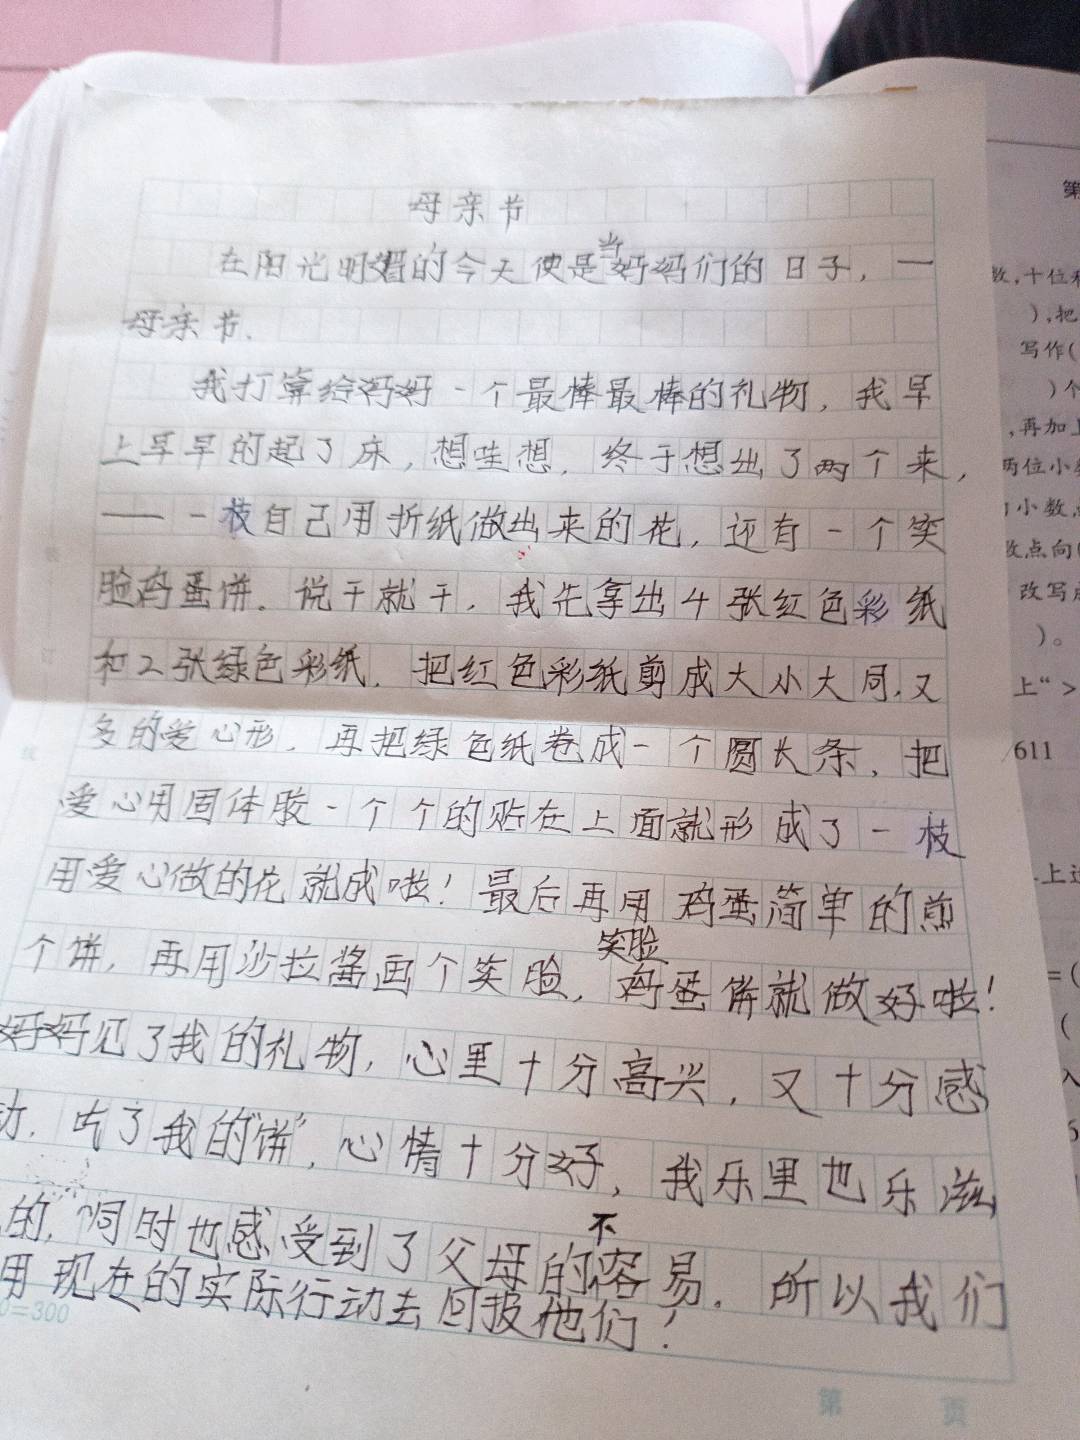 母亲节
在阳光明媚的今天便是当妈妈们的日子，一
母亲节.
我打算给妈妈一个最棒最棒的礼物，我早
上早早的起了床，想哇想，终于想出了两个来，
—— 一枝自己用折纸做出来的花，还有一个笑
脸鸡蛋饼。说干就干，我先拿出4张红色彩纸
和2张绿色彩纸，把红色彩纸剪成大小大同，又
多的爱心形，再把绿色纸卷成一个圆长条，把
爱心用固体胶一个个的贴在上面就形成了一枝
用爱心做的花就成啦！最后再用鸡蛋简单的煎
个饼，再用沙拉酱画个笑脸，笑脸鸡蛋饼就做好啦！
妈妈见了我的礼物，心里十分高兴，又十分感
动，吃了我的“饼”，心情十分好，我乐里也乐滋
的，同时也感受到了父母的不容易。所以我们
用现在的实际行动去回报他们！
=300
第 页
第
数，十位
），把
写作（
）个
，再加上
两位小
小数
数点向
改写成
）。
上“＞
611
上述
＝（
（
入